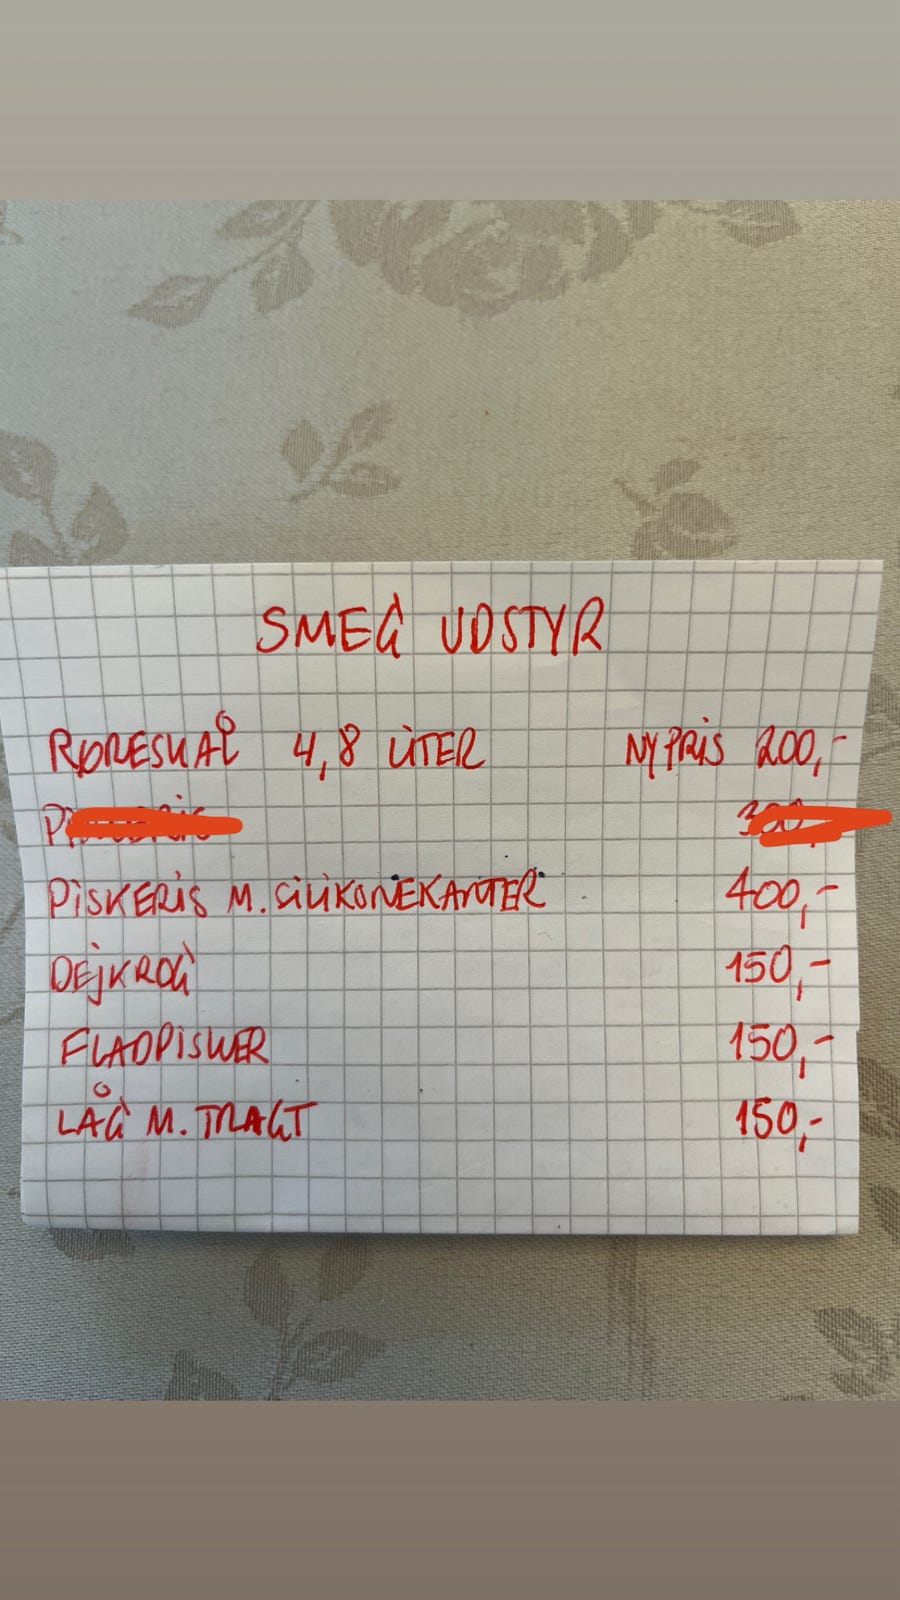 SMEG UDSTYR
RØRESKÅL 4,8 LITER NYPRIS 200,-
PISKERIS M. SILIKONEKANTER 400,-
DEJKROG 150,-
FLADPISKER 150,-
LÅG M. TRAGT 150,-